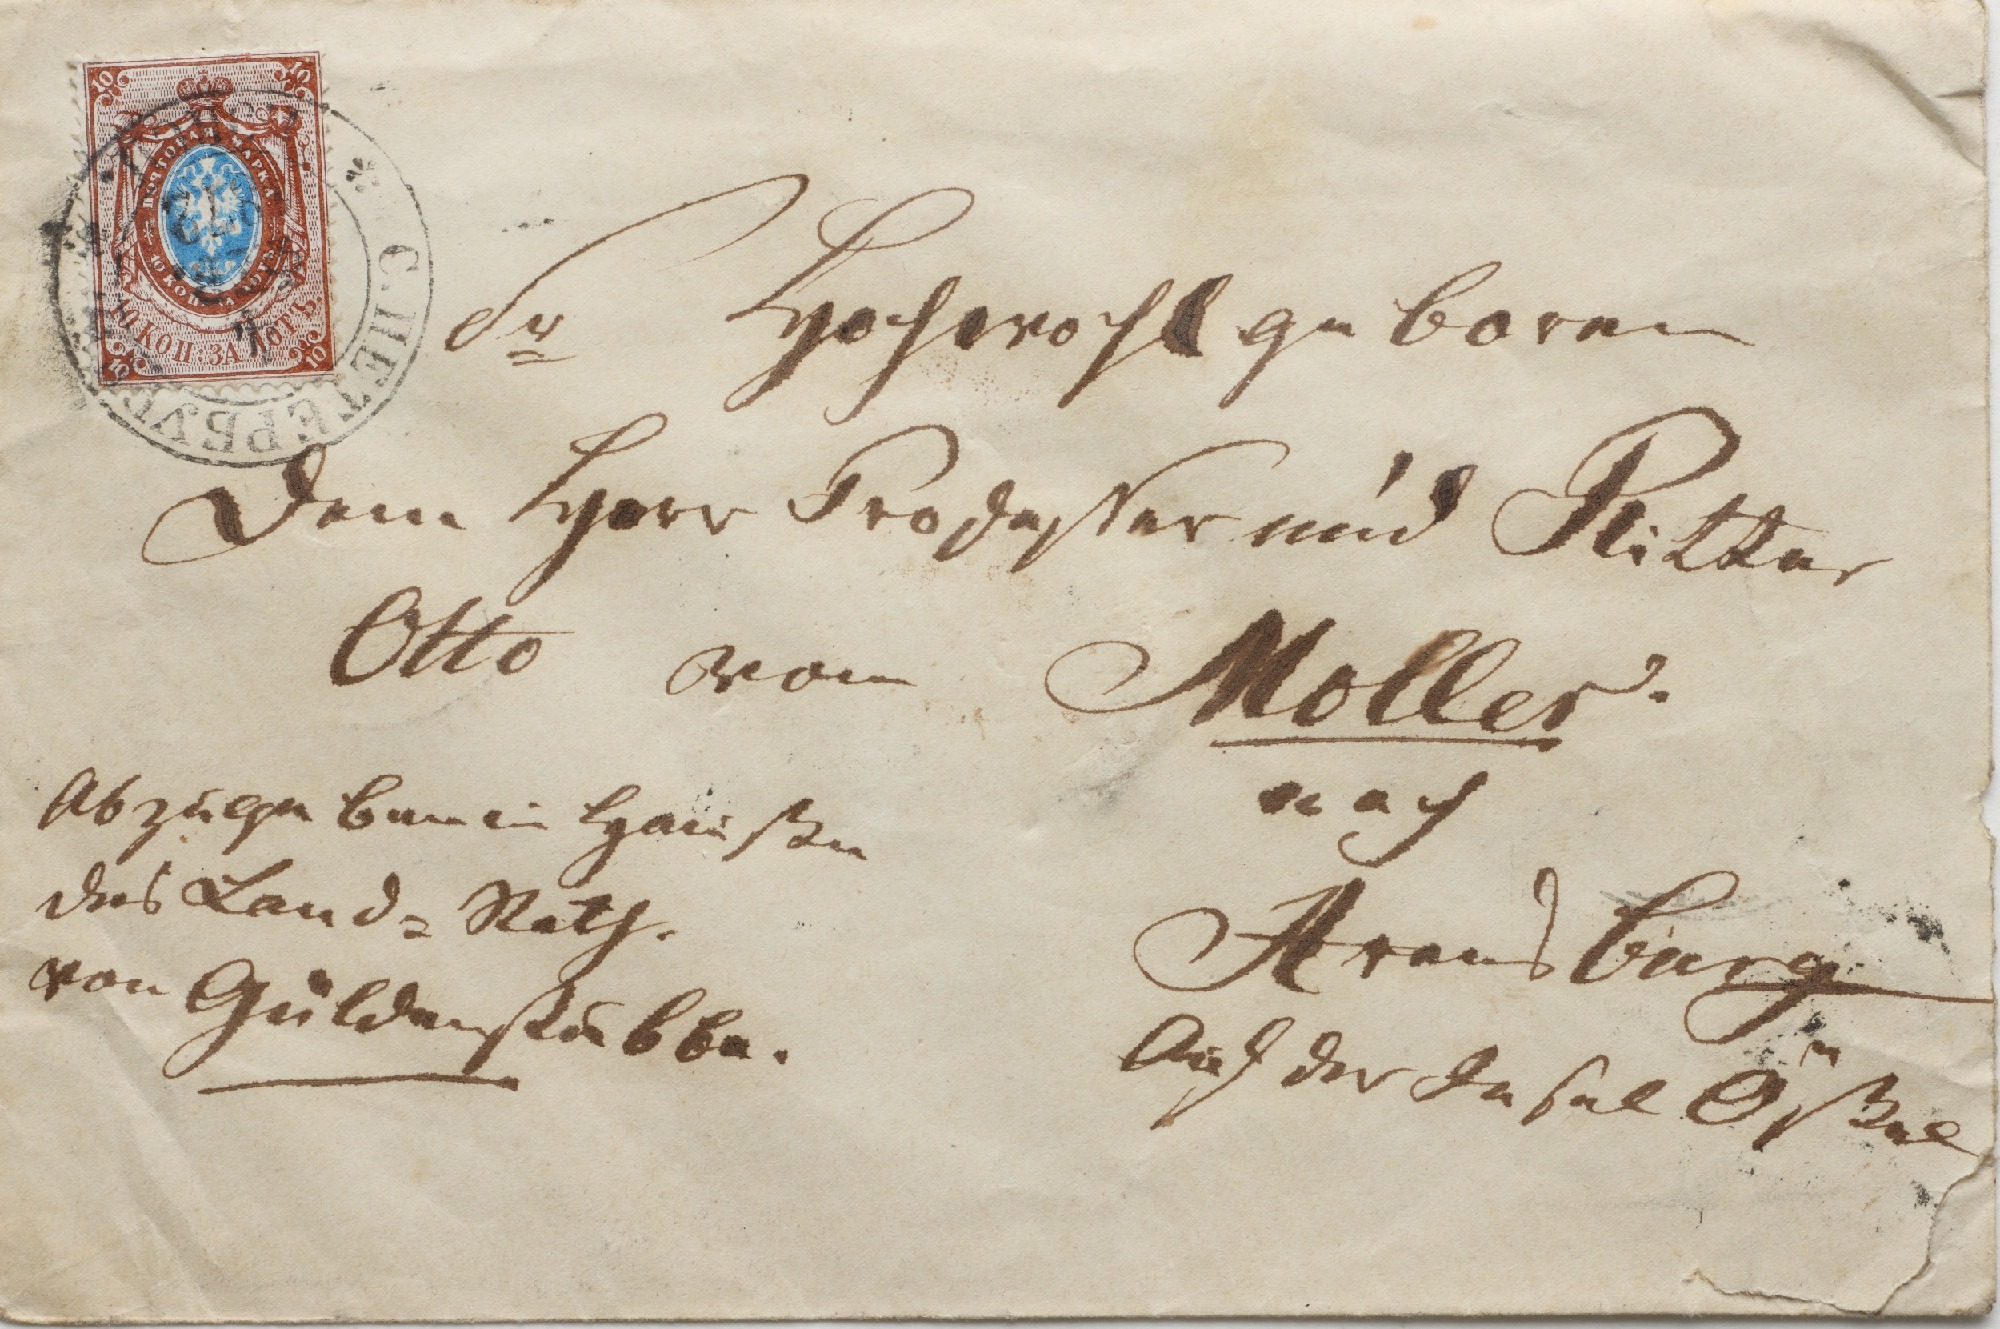 10 10
ПОЧТОВАЯ МАРКА
10 КОП. ЗА ЛОТЪ
10 КОП: ЗА ЛОТЪ.
10 10
С. ПЕТЕРБУРГ
Sr Hochwohlgeboren
Dem Herr Professor und Ritter
Otto von Moller.
nach
Arensburg
Auf der Insel Ößel
Abzugeben im Hause
des Land= Rath.
von Güldenstubbe.